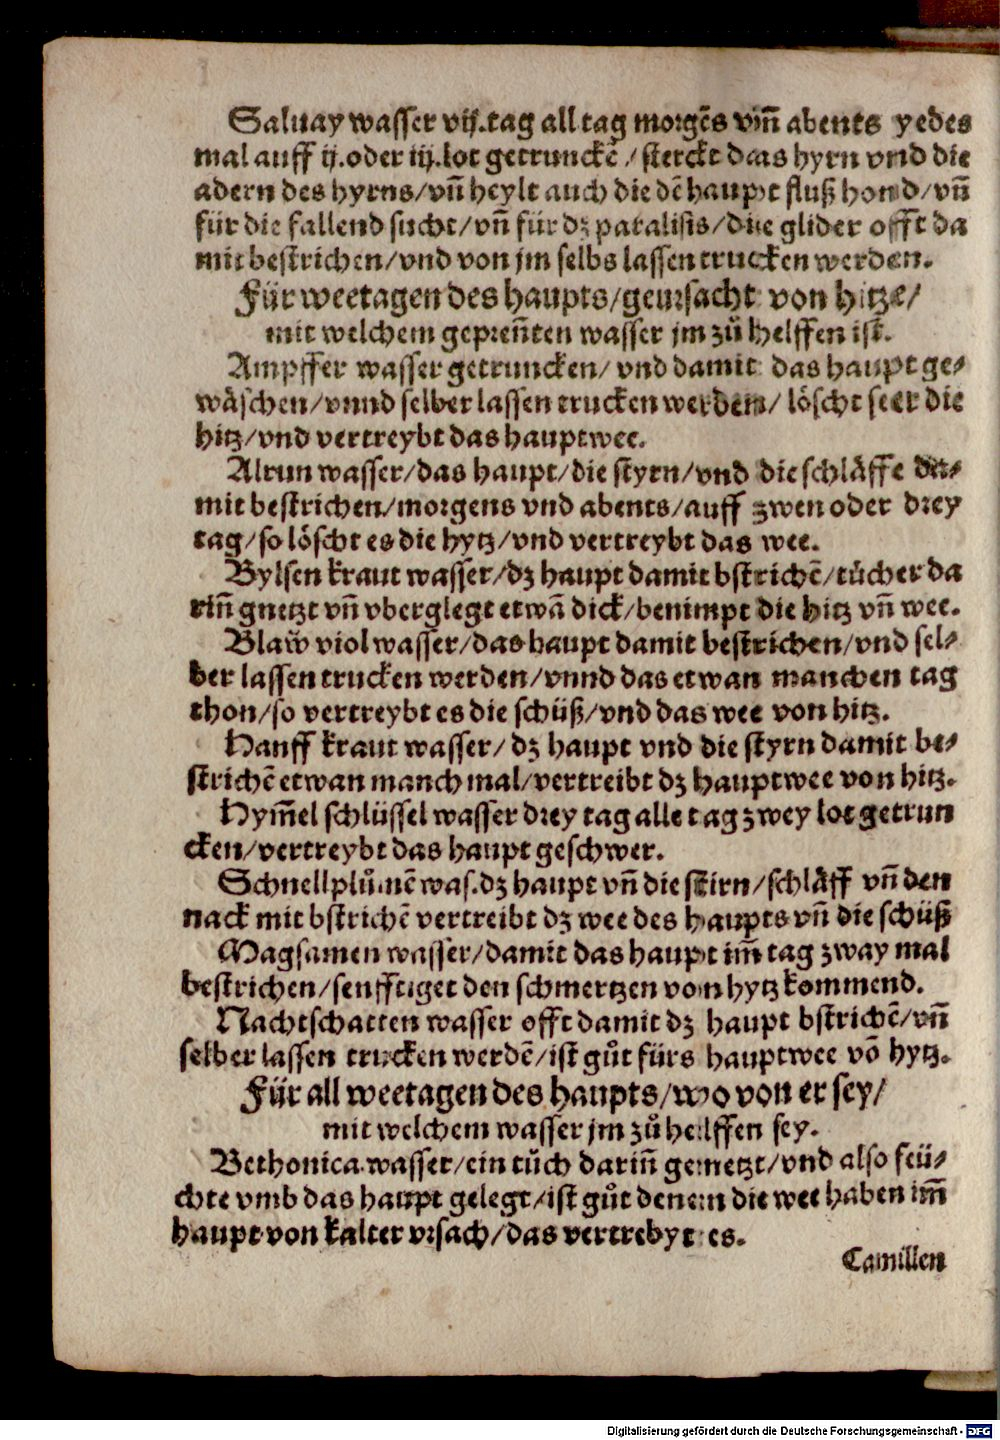 Saluay wasser vij.tag all tag morgēs vm̄ abents yedes
mal auff ij.oder iij.lot getrunckē/sterckt das hyrn vnd die
adern des hyrns/vn̄ heylt auch die dē haupt fluß hond/vn̄
für die fallend sucht/vn̄ für dz paralisis/die glider offt da
mit bestrichen/vnd von jm selbs lassen trucken werden.
Für weetagen des haupts/geursacht von hitze/
mit welchem geprēnten wasser jm zů helffen ist.
Ampffer wasser getruncken/ vnd damit das haupt ge⸗
wäschen/vnnd selber lassen trucken werden/ löscht seer die
hitz/vnd vertreybt das hauptwee.
Alrun wasser/das haupt/die styrn/vnd die schläffe da⸗
mit bestrichen/morgens vnd abents/auff zwen oder drey
tag/so löscht es die hytz/vnd vertreybt das wee.
Bylsen kraut wasser/dz haupt damit bstrichē/tücher da
rin̄ gnetzt vn̄ vberglegt etwā dick/benimpt die hitz vn̄ wee.
Blaw viol wasser/das haupt damit bestrichen/vnd sel⸗
ber lassen trucken werden/vnnd das etwan manchen tag
thon/so vertreybt es die schüß/vnd das wee von hitz.
Hanff kraut wasser/ dz haupt vnd die styrn damit be⸗
strichē etwan manch mal/vertreibt dz hauptwee von hitz.
Hym̄el schlüssel wasser drey tag alle tag zwey lot getrun
cken/vertreybt das haupt geschwer.
Schnellplůmē was.dz haupt vn̄ die stirn/schläff vn̄ den
nack mit bstrichē vertreibt dz wee des haupts vn̄ die schüß
Magsamen wasser/damit das haupt im̄ tag zway mal
bestrichen/senfftiget den schmertzen von hytz kommend.
Nachtschatten wasser offt damit dz haupt bstrichē/vn̄
selber lassen trucken werdē/ist gůt fürs hauptwee vō hytz.
Für all weetagen des haupts/wo von er sey/
mit welchem wasser jm zů helffen sey.
Bethonica wasser/ein tůch darin̄ genetzt/vnd also feü⸗
chte vmb das haupt gelegt/ist gůt denen die wee haben im̄
haupt von kalter vrsach/das vertrebyt es.
Camillen
Digitalisierung gefördert durch die Deutsche Forschungsgemeinschaft - DFG